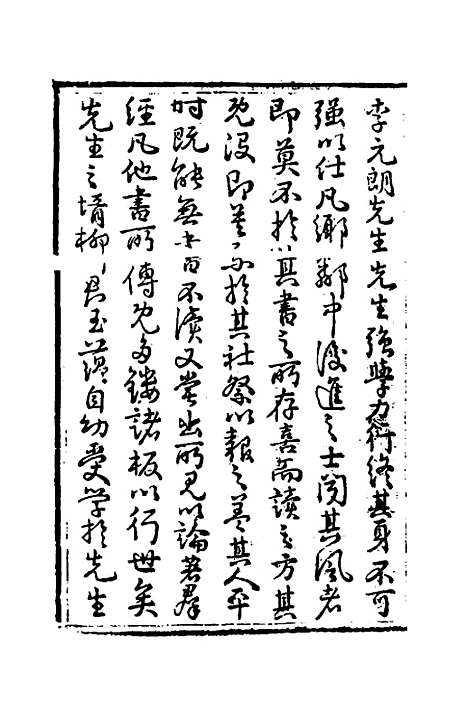 李元朗先生先生強學力行終其身不可
強以仕凡鄉鄰中後進之士聞其風者
即莫不於其書之所存喜而讀之方其
既没即並而於其社祭以報之蓋其人平
時既能無書不讀又嘗出所見以論著羣
經凡他書所傳既多鏤諸板以行世矣
先生之壻柳君玉藴自幼受學於先生